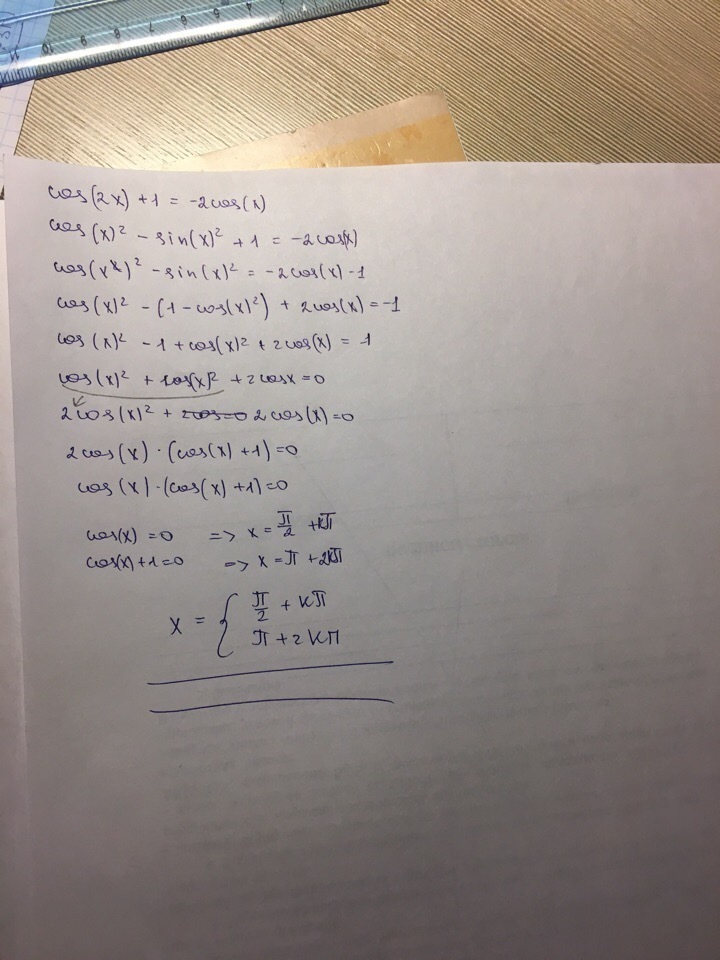 cos(2x) + 1 = -2cos(x)
cos(x)² - sin(x)² + 1 = -2cos(x)
cos(x)² - sin(x)² = -2cos(x) - 1
cos(x)² - (1 - cos(x)²) + 2cos(x) = -1
cos(x)² - 1 + cos(x)² + 2cos(x) = 1
cos(x)² + cos(x)² + 2cosx = 0
2cos(x)² + 2cos(x) = 0
2cos(x) · (cos(x) + 1) = 0
cos(x) · (cos(x) + 1) = 0
cos(x) = 0 => x = π/2 + kπ
cos(x) + 1 = 0 => x = π + 2kπ
x = { π/2 + kπ
π + 2kπ